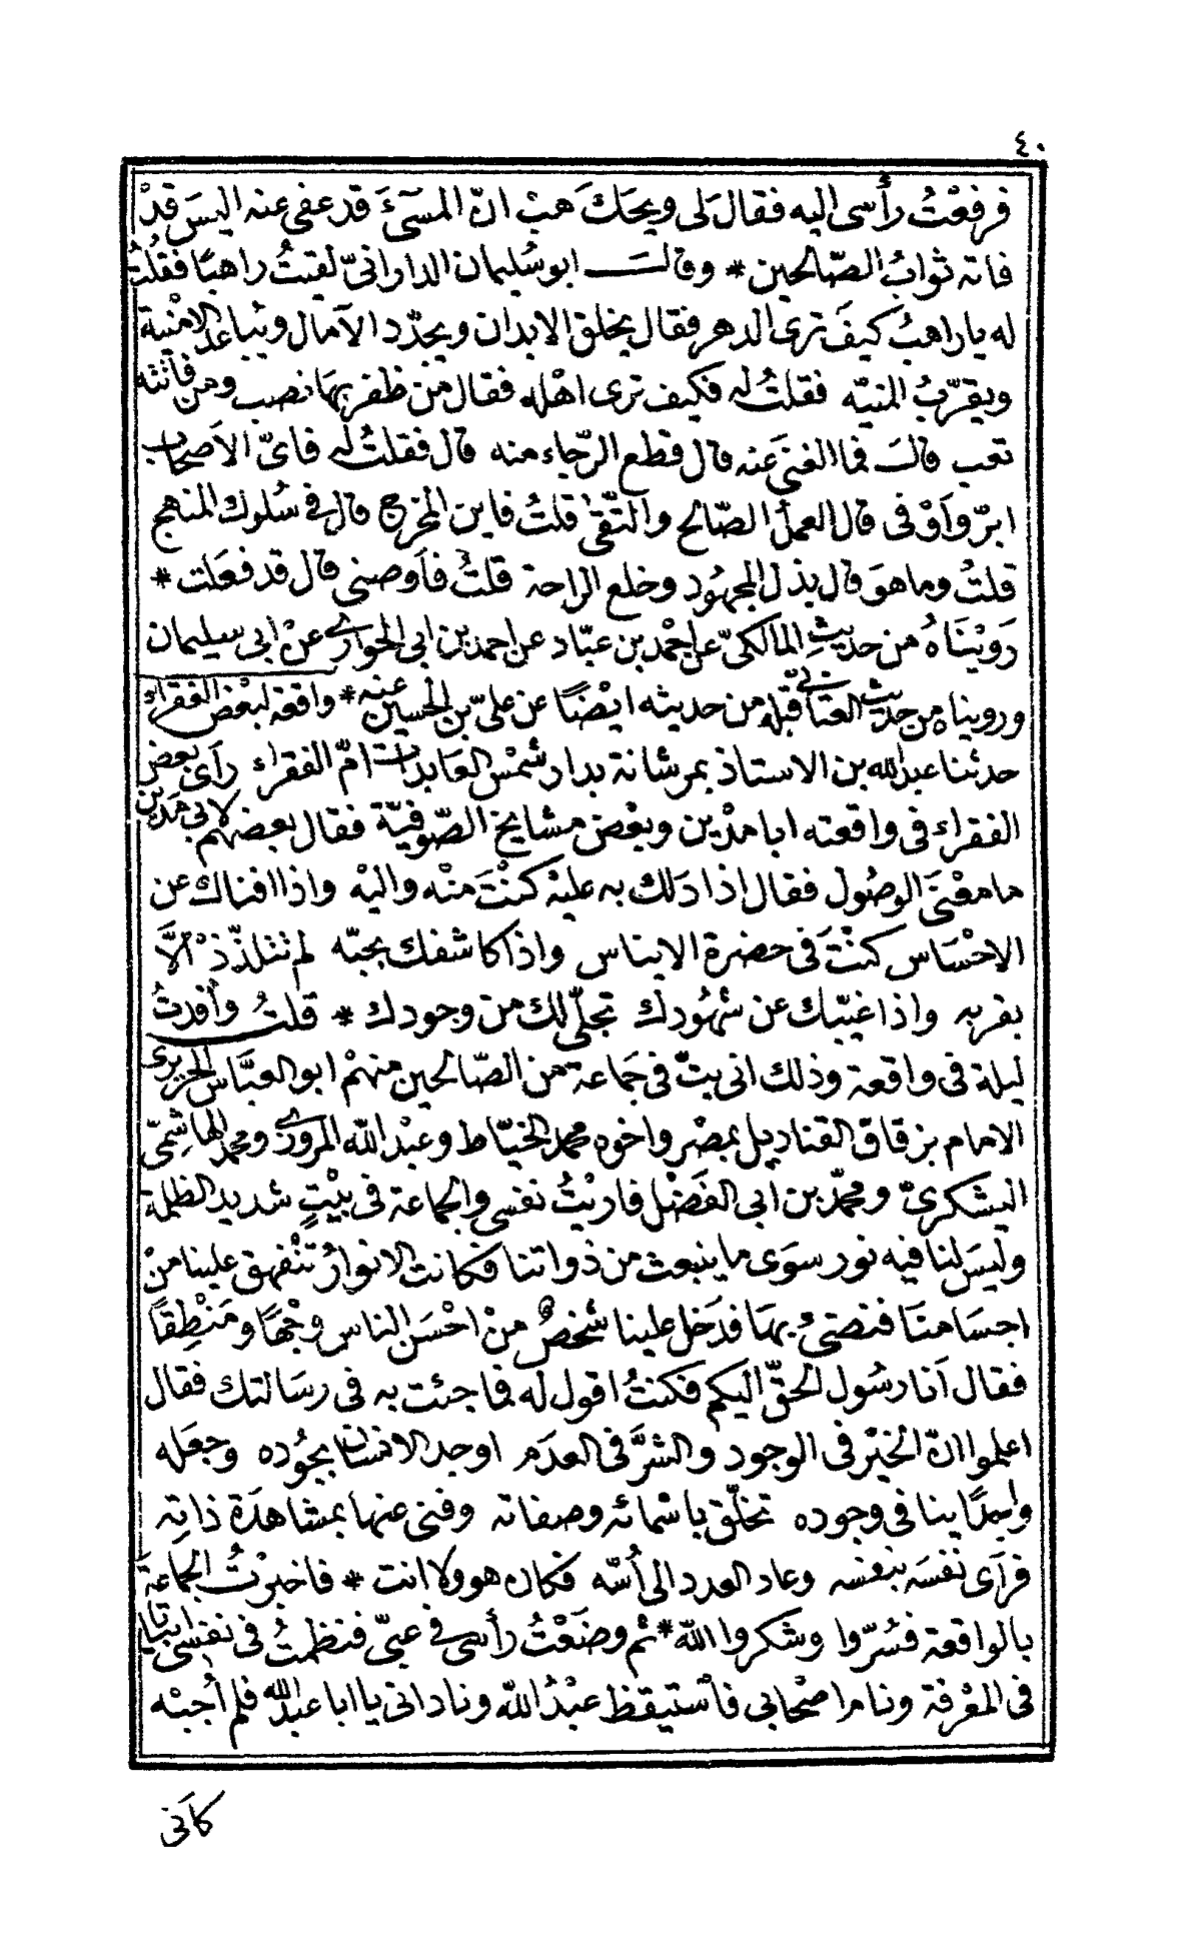 ٤٠
فرفعْتُ رأسى اليه فقال لى ويحك هبْ انّ المسىءَ قد عفى عنه اليسَ قدْ
فاته ثوابُ الصّالحين * وقالـــ ابو سُليمان الدارانىّ لقيتُ راهبًا فقُلتُ
له يا راهبُ كيفَ ترى الدهر فقال يخلق الابدان ويجدّد الآمال ويُباعد الامْنية
ويقرّبُ المنيّه فقلتُ له فكيف ترى اهْله فقال من ظفر بها نصب ومن فاتته
تعب قالـ فما الغنى عنه قال قطع الرّجاء منه قال فقلتُ له فاىّ الاَصْحاب
ابرّ واَوْفى قال العملُ الصّالح والتّقى قلتُ فاين المخرج قال فى سُلوك المنهج
قلتُ وما هوَ قال بذل المجهُود وخلع الراحة قلتُ فاَوصنى قال قد فعَلت *
رَويْنَاهُ من حديثِ المالكىّ عن احْمد بن عبّاد عن احمد بن ابى الحوارى عنْ ابى سيليمان
وروينا من حديث العتّابى قبله من حديثه ايْضًا عن علىّ بن الحسين عنه * واقعة لبعْض الفقراء
حدثنا عبدالله بن الاستاذ بمرشانة بدار شمْس العَابدات امّ الفقراء رآى بعض
الفقراء فى واقعته ابا مدْين وبعْض مشايخ الصّوفيّة فقال بعضهُم لابى مَدين
ما معْنَى الوصُول فقال اذا دَلك به عليْه كنْتَ منْه واليْه واذا افناك عن
الاحْسَاس كنْتَ فى حضرة الايناس واذا كاشفك بحبّه لم تتلذّذْ الاّ
بقربه واذا غيّبك عن شهُودك تجلّى لك من وجودك * قلتُ وأفدتُ
ليلة فى واقعة وذلك انى بتّ فى جَماعة من الصّالحين منهمْ ابو العبَّاس الحريرى
الامام بزقاق القناديل بمصْر واخوه محمد الخيّاط وعبْد اللّه المروزى ومحمد الهاشمىّ
اليشكرىّ ومحمّد بن ابى الفَضْل فاريْتُ نفسى والجماعة فى بيْتٍ شديد الظلمة
وليَس لنا فيه نور سوَى ما ينبعث من ذواتنا فكانت الانوارُ تنْفهق علينا منْ
اجسَامنَا فنضىُ بهَا فدَخل علينا شخصٌ منْ احْسَن الناس وجْهًا ومَنْطِقًا
فقال اَنا رسُول الحقّ اليكم فكنتُ اقول له فما جئت به فى رسَالتك فقال
اعلموا انّ الخيْر فى الوجود والشرَّ فى العدَم اوجد الانسان بجُوده وجعَله
واحدًا ينافى وجوده تخلّق باسْمائه وصفاته وفنى عنها بمشاهدَة ذاتِه
فرَآى نفسَه بنفْسه وعاد العدد الى أُسّه فكان هو ولا انت * فاخبرْتُ الجماعةَ
بالواقعة فسُرّوا وشكروا اللّه * ثم وضَعْتُ رأسى فى عبّى فنظمْتُ فى نفسى ابياتا
فى المعْرفة ونامرا صْحابى فاَسْتيقظ عبْدُ اللّه ونادانى يا ابا عبْدالله فلم أجبْه
كاَنى